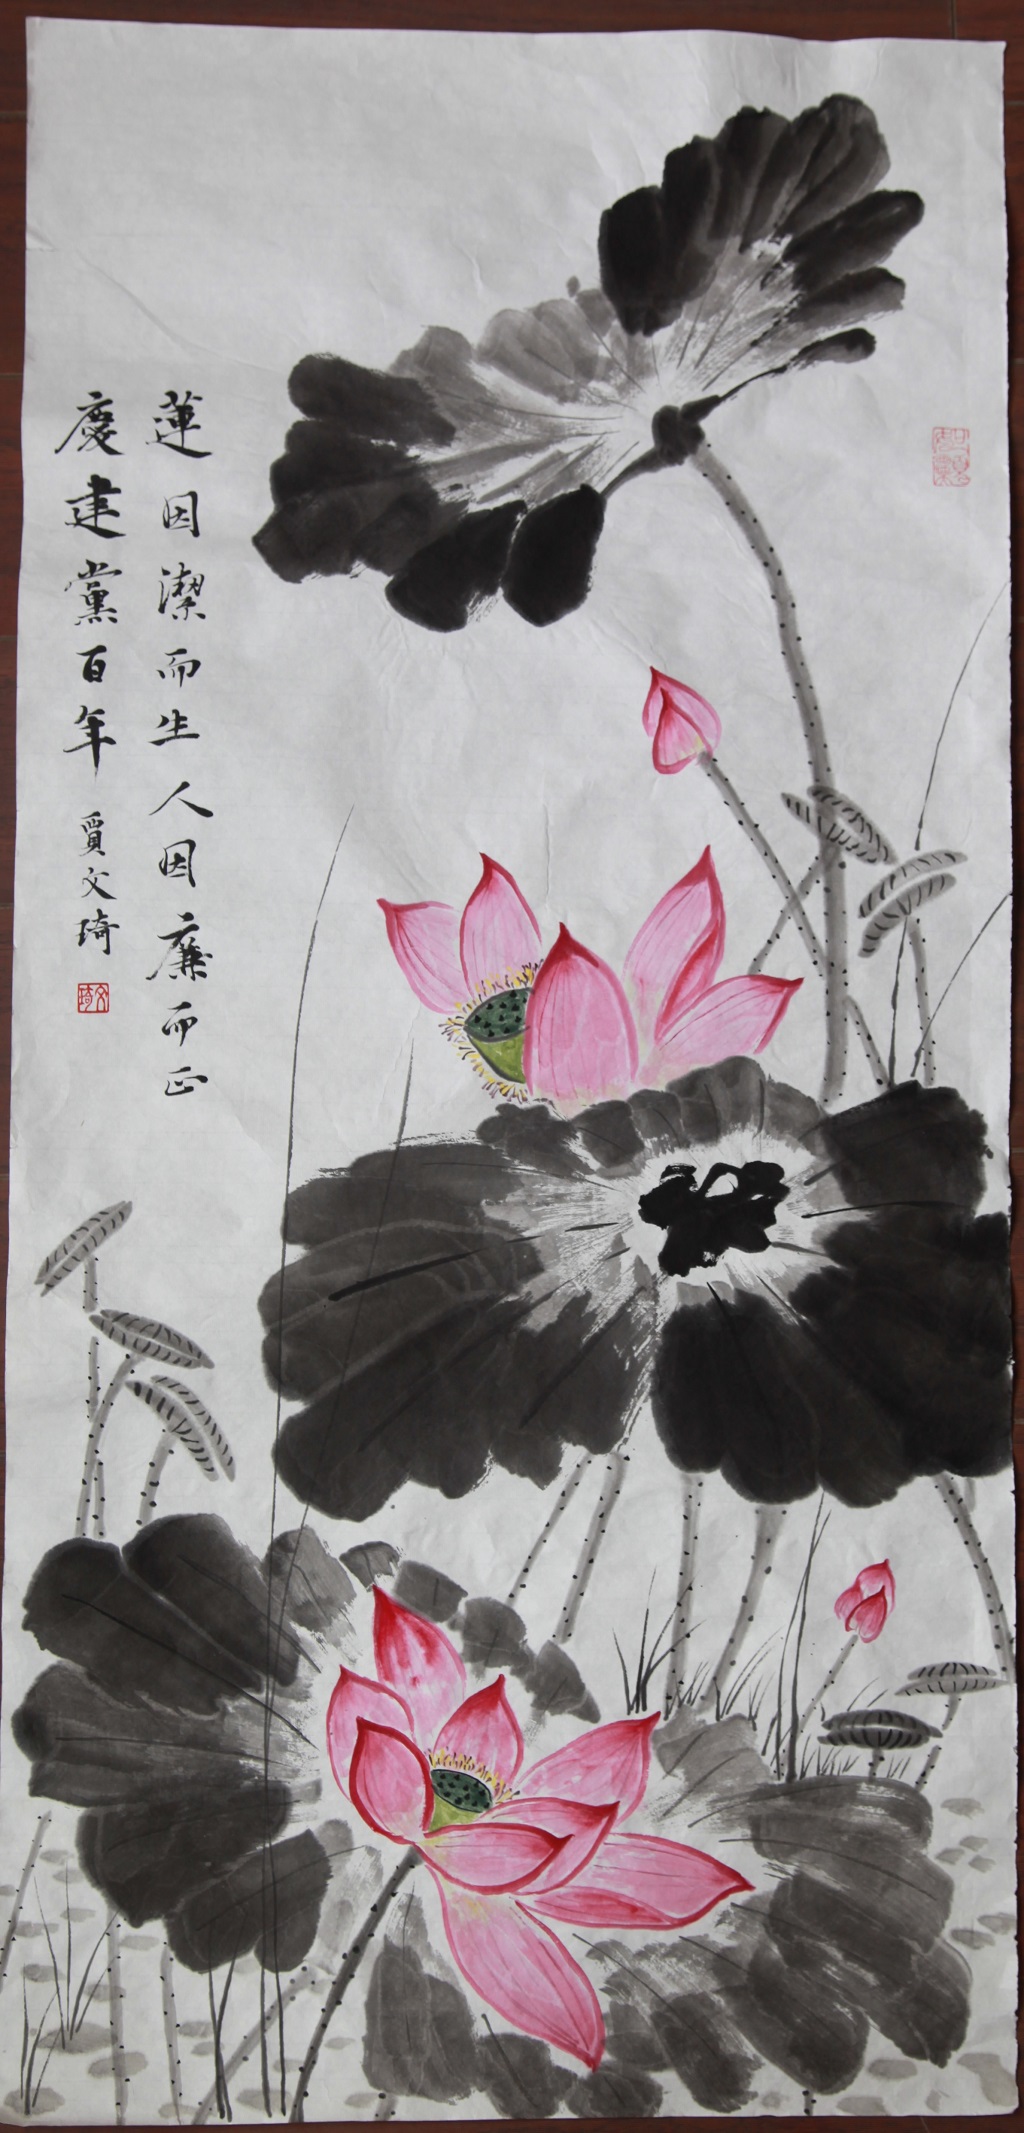 蓮因潔而生人因廉而正
慶建黨百年 賈文琦
文琦